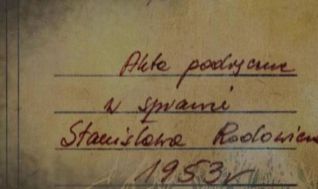 Akta podręczne
w sprawie
Stanisława Radowicza
1953 r